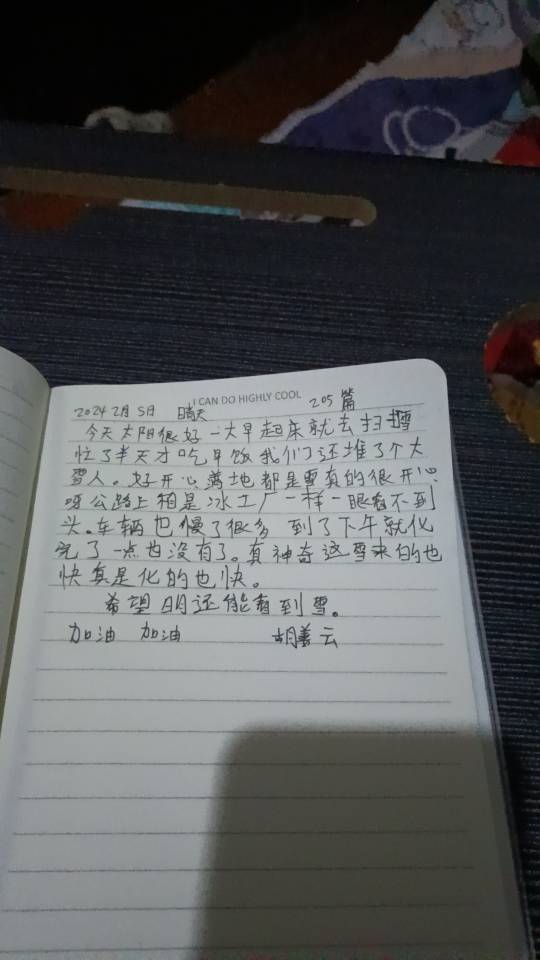 I CAN DO HIGHLY COOL
2024 2月 5日 晴天 205 篇
今天太阳很好一大早起来就去扫雪
忙了半天才吃早饭我们还堆了个大
雪人。好开心满地都是雪真的很开心
呀公路上相是冰工厂一样一眼看不到
头。车辆也慢了很多 到了下午就化
完了一点也没有了。真神奇这雪来的也
快真是化的也快。
希望明还能看到雪。
加油 加油 胡善云